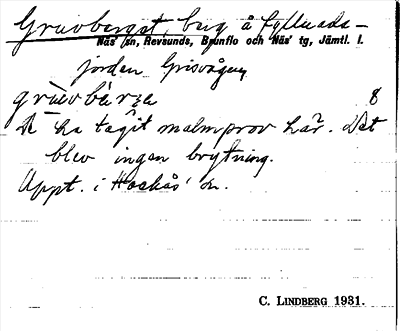 Gruvberget, berg å Gyllnäs-
Näs' sn, Revsunds, Brunflo och Näs' tg, Jämtl. l.
jorden Grisvågen
grùvbærʒe 8
De ha tagit malmprov här. Det
blev ingen brytning.
Uppt. i Hackås' sn.
C. LINDBERG 1931.